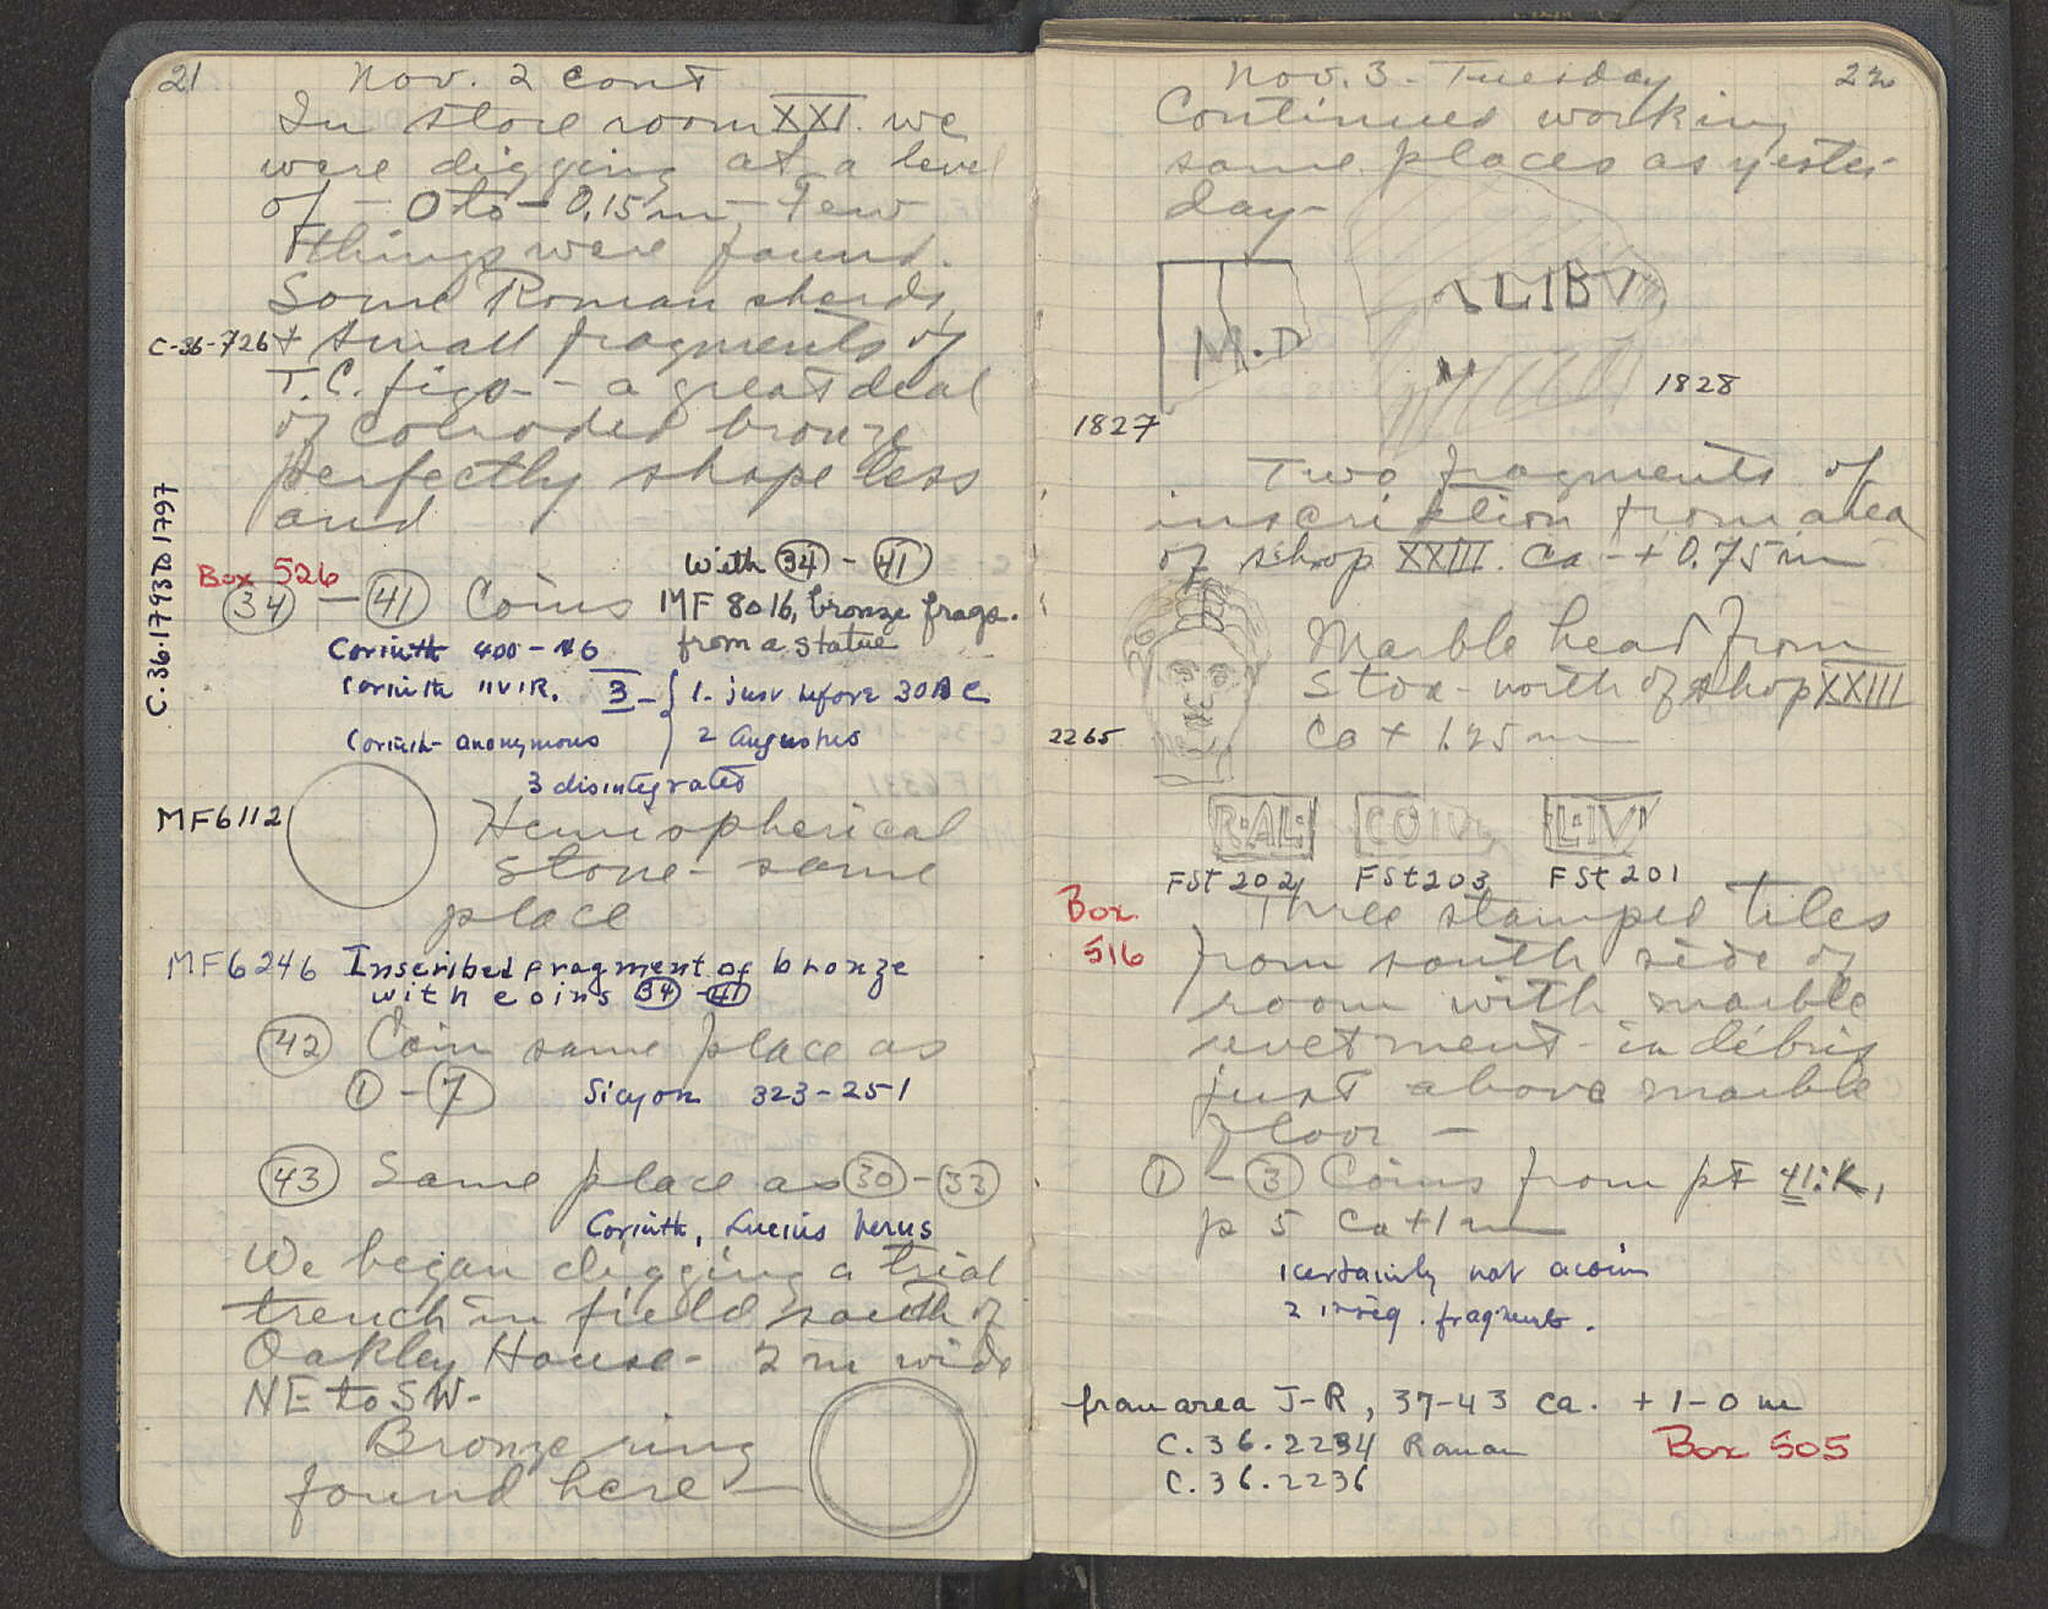 21
Nov. 2 cont
In store room XXI. we
were digging at a level
of - 0 to - 0.15 m - Few
things were found.
Some Roman sherds,
C-36-726 + small fragments of
T.C. figs - a great deal
of corroded bronze
perfectly shapeless
and
Box 526
34 - 41 Coins
with 34 - 41
MF 8016, bronze frags.
from a statue
Corinth 400-146
Corinth IIVIR. 3 - { 1. just before 30 BC
Corinth anonymous 2 Augustus
3 disintegrated
MF6112 Hemispherical
stone - same
place
MF6246 Inscribed fragment of bronze
with coins 34 - 41
42 Coin same place as
1 - 7 Sicyon 323-251
43 Same place as 30 - 33
Corinth, Lucius Verus
We began digging a trial
trench in field south of
Oakley House - 2 m wide
NE to SW -
Bronze ring
found here -
22
Nov. 3 - Tuesday
Continued working
same places as yester-
day -
M.D
LIBV
1827
1828
Two fragments of
inscription from area
of shop XXIII. ca - + 0.75 m
Marble head from
Stoa - north of shop XXIII
2265 ca + 1.25 m
R.AL. COIV L.IV
FSt 202 FSt 203 FSt 201
Box
516
Three stamped tiles
from south side of
room with marble
revetment - in débris
just above marble
floor -
1 - 3 Coins from pt 41:K,
p 5 ca + 1 m
1 certainly not a coin
2 irreg. fragments.
from area J-R, 37-43 ca. + 1-0 m
C.36.2234 Roman Box 505
C.36.2236